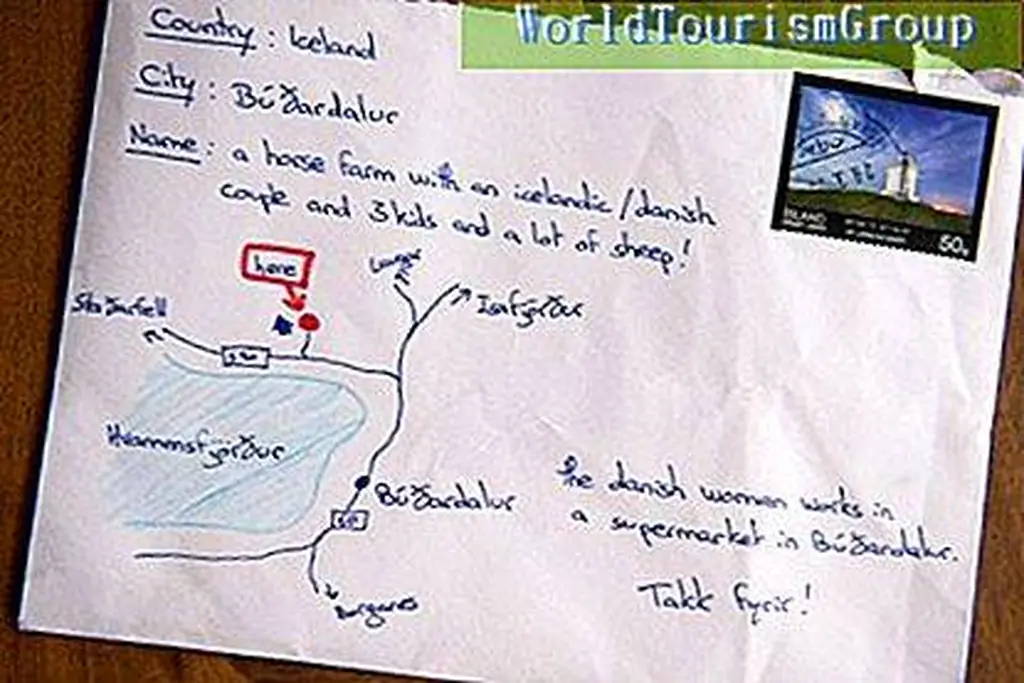 WorldTourismGroup
Country : Iceland
City : Búðardalur
Name : a horse farm with an icelandic/danish
couple and 3 kids and a lot of sheep!
ÍSLAND
50g
here
Staðarfell
Ísafjörður
Hvammsfjörður
Búðardalur
The danish woman works in
a supermarket in Búðardalur.
Takk fyrir!
Borganes